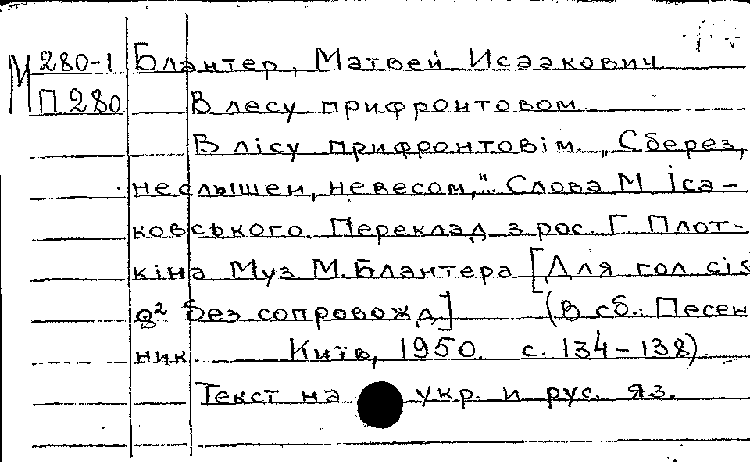 М 280-1 Блантер, Матвей Исаакович
П 280 В лесу прифронтовом
В лісу прифронтовім. „Сберез,
неслышен, невесом,". Слова М Іса-
ковського. Переклад з рос. Г Плот-
кіна Муз М. Блантера [Для гол сів
без сопровожд] (В сб.: Песен
ник. Київ, 1950. с. 134-138)
Текст на укр. и рус. яз.